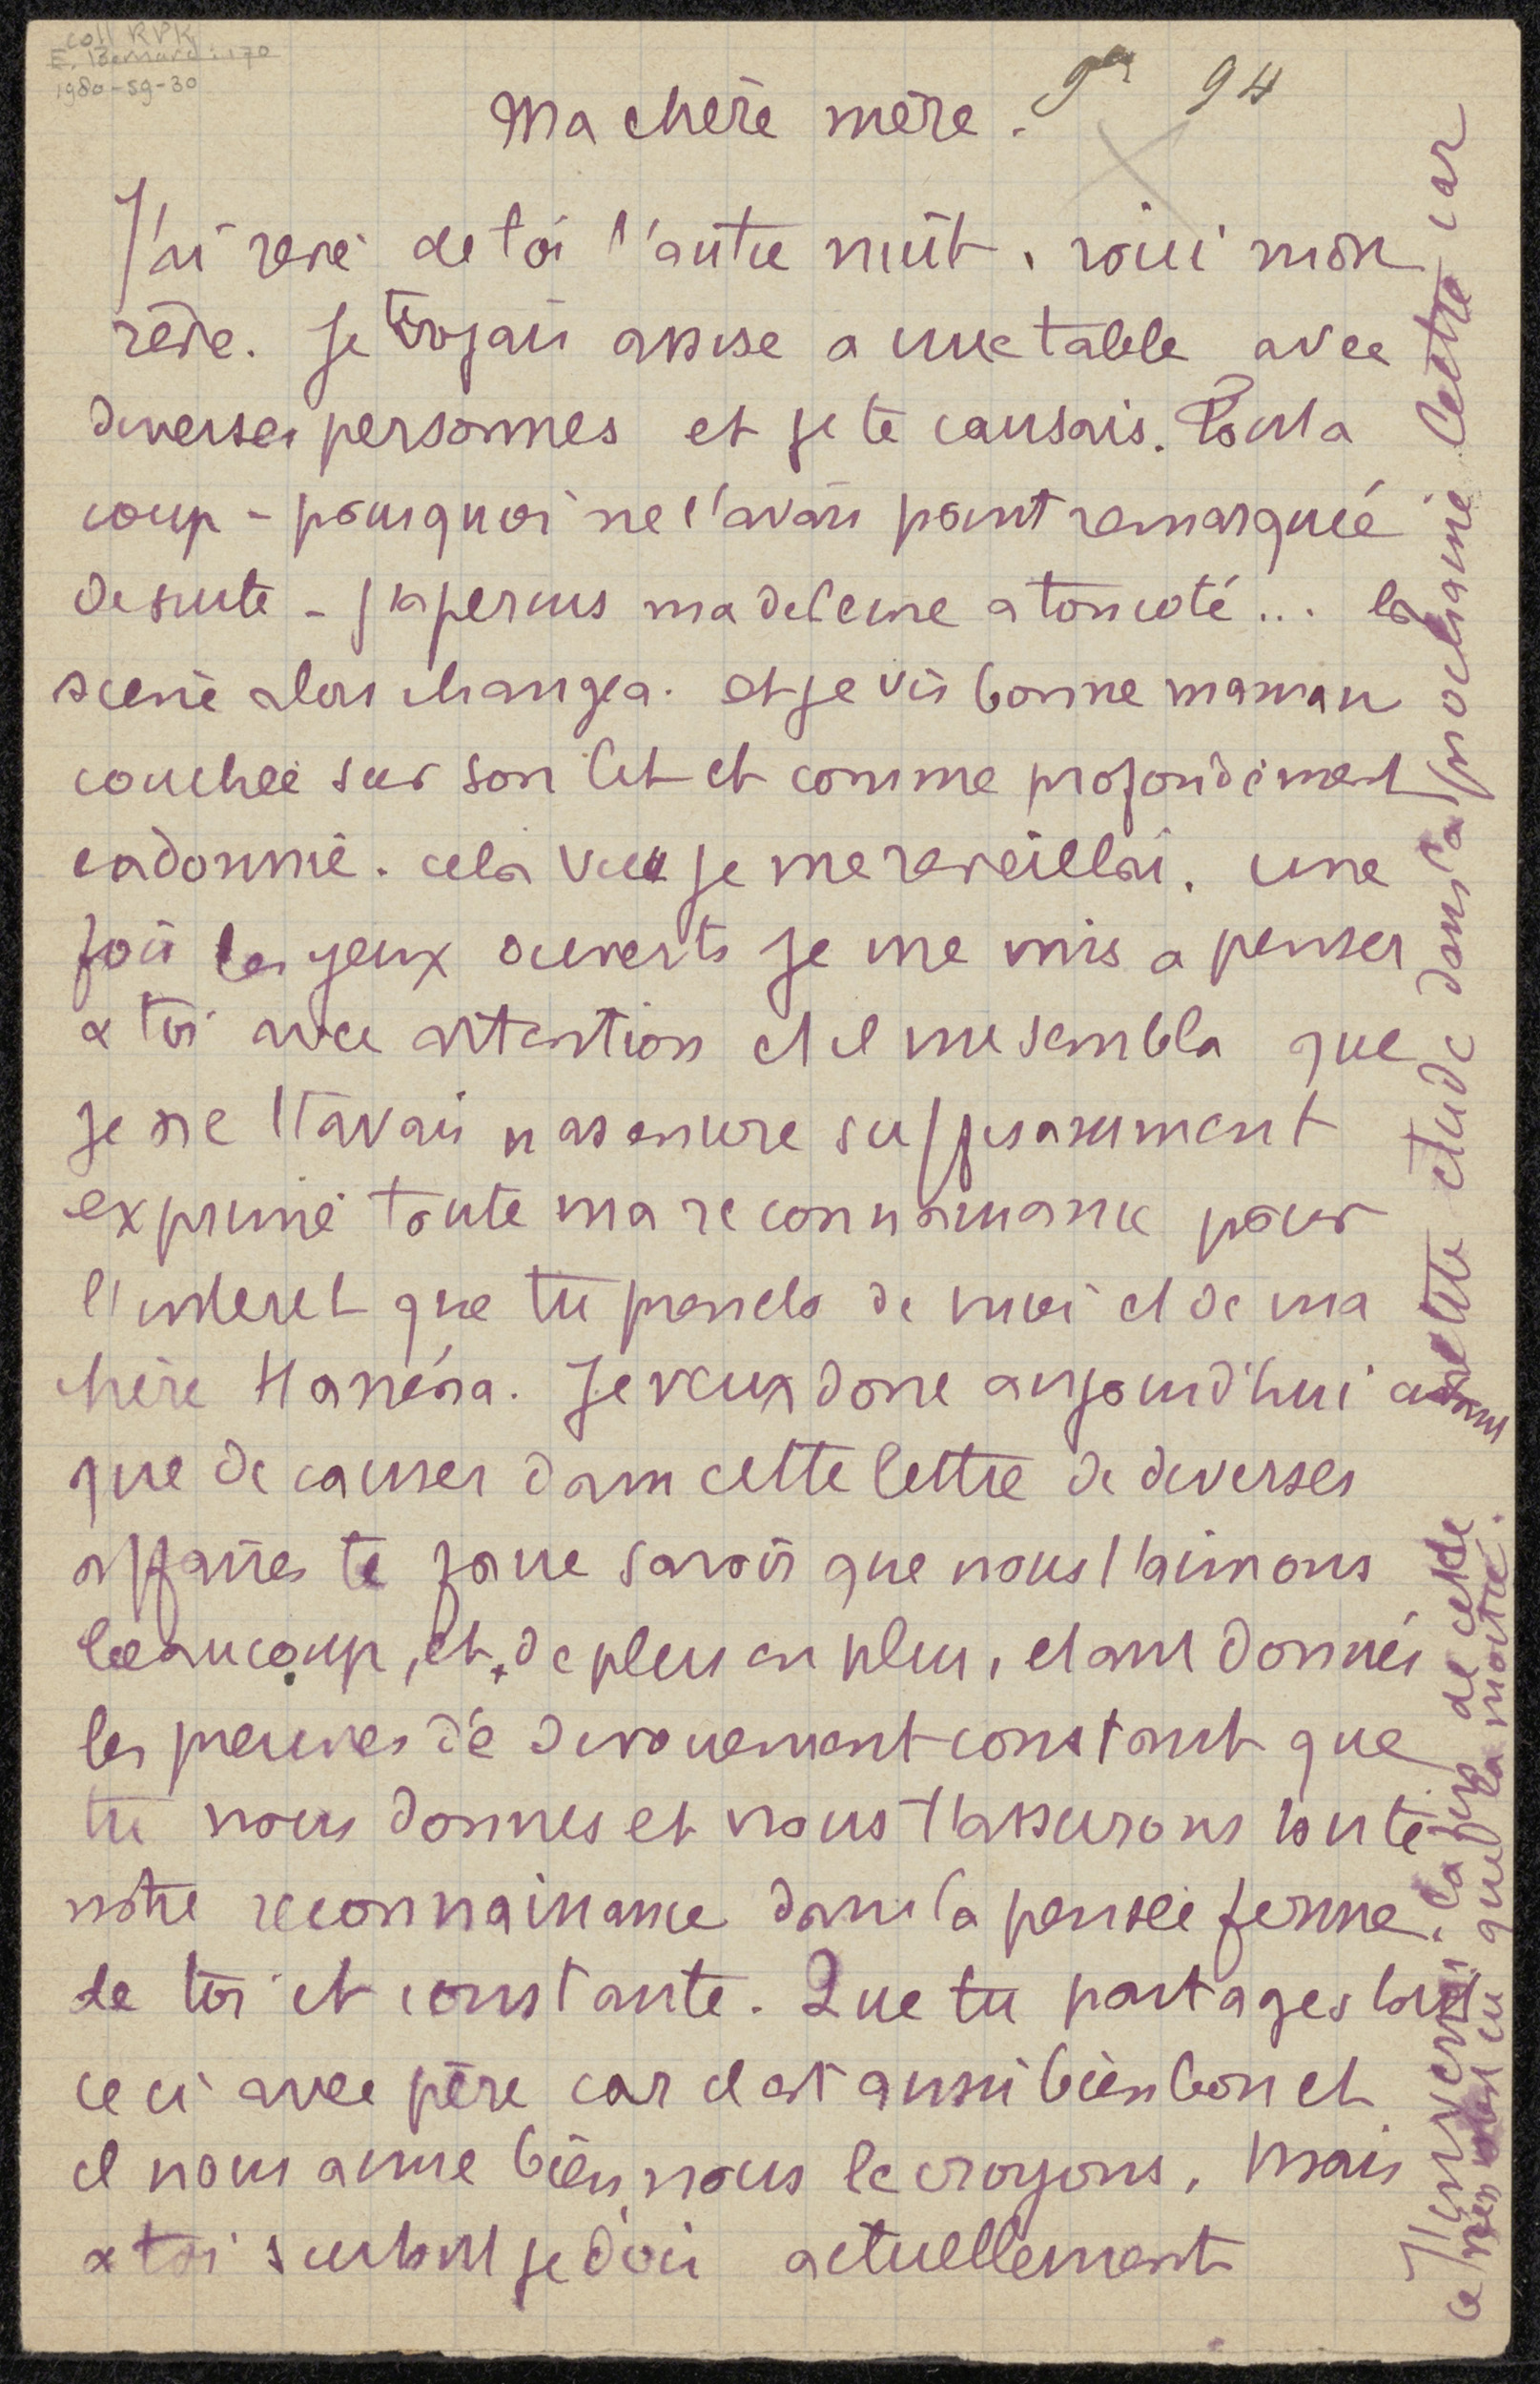 coll RPK
E. Bernard: 170
1980-59-30
94
Ma chère mère.
J'ai revé de toi l'autre nuit, voici mon
rêve. Je te voyais assise a une table avec
diverses personnes et je te causais. Tout a
coup - pourquoi ne l'avais point remarquée
de suite - j'aperçus madeleine a ton coté... la
scene alors changea. et je vis bonne maman
couchée sur son lit et comme profondément
endormie. cela vu je me reveillai. une
fois les yeux ouverts je me mis a penser
a toi avec attention et il me sembla que
je ne t'avais pas encore suffisamment
exprimé toute ma reconnaissance pour
l'interet que tu prends de moi et de ma
chère Hanéna. Je veux donc aujourd'hui avant
que de causer dans cette lettre de diverses
affaires te faire savoir que nous t'aimons
beaucoup, et de plus en plus, etant donnés
les preuves de devouement constant que
tu nous donnes et nous t'assurons toute
notre reconnaissance dans la pensée ferme
de toi et constante. Que tu partages tout
ceci avec père car il est aussi bien bon et
il nous aime bien, nous le croyons. Mais
a toi surtout je dois actuellement
J'enverrai la fin de cette petite etude dans la prochaine lettre car
ce n'en est ici que la moitié.